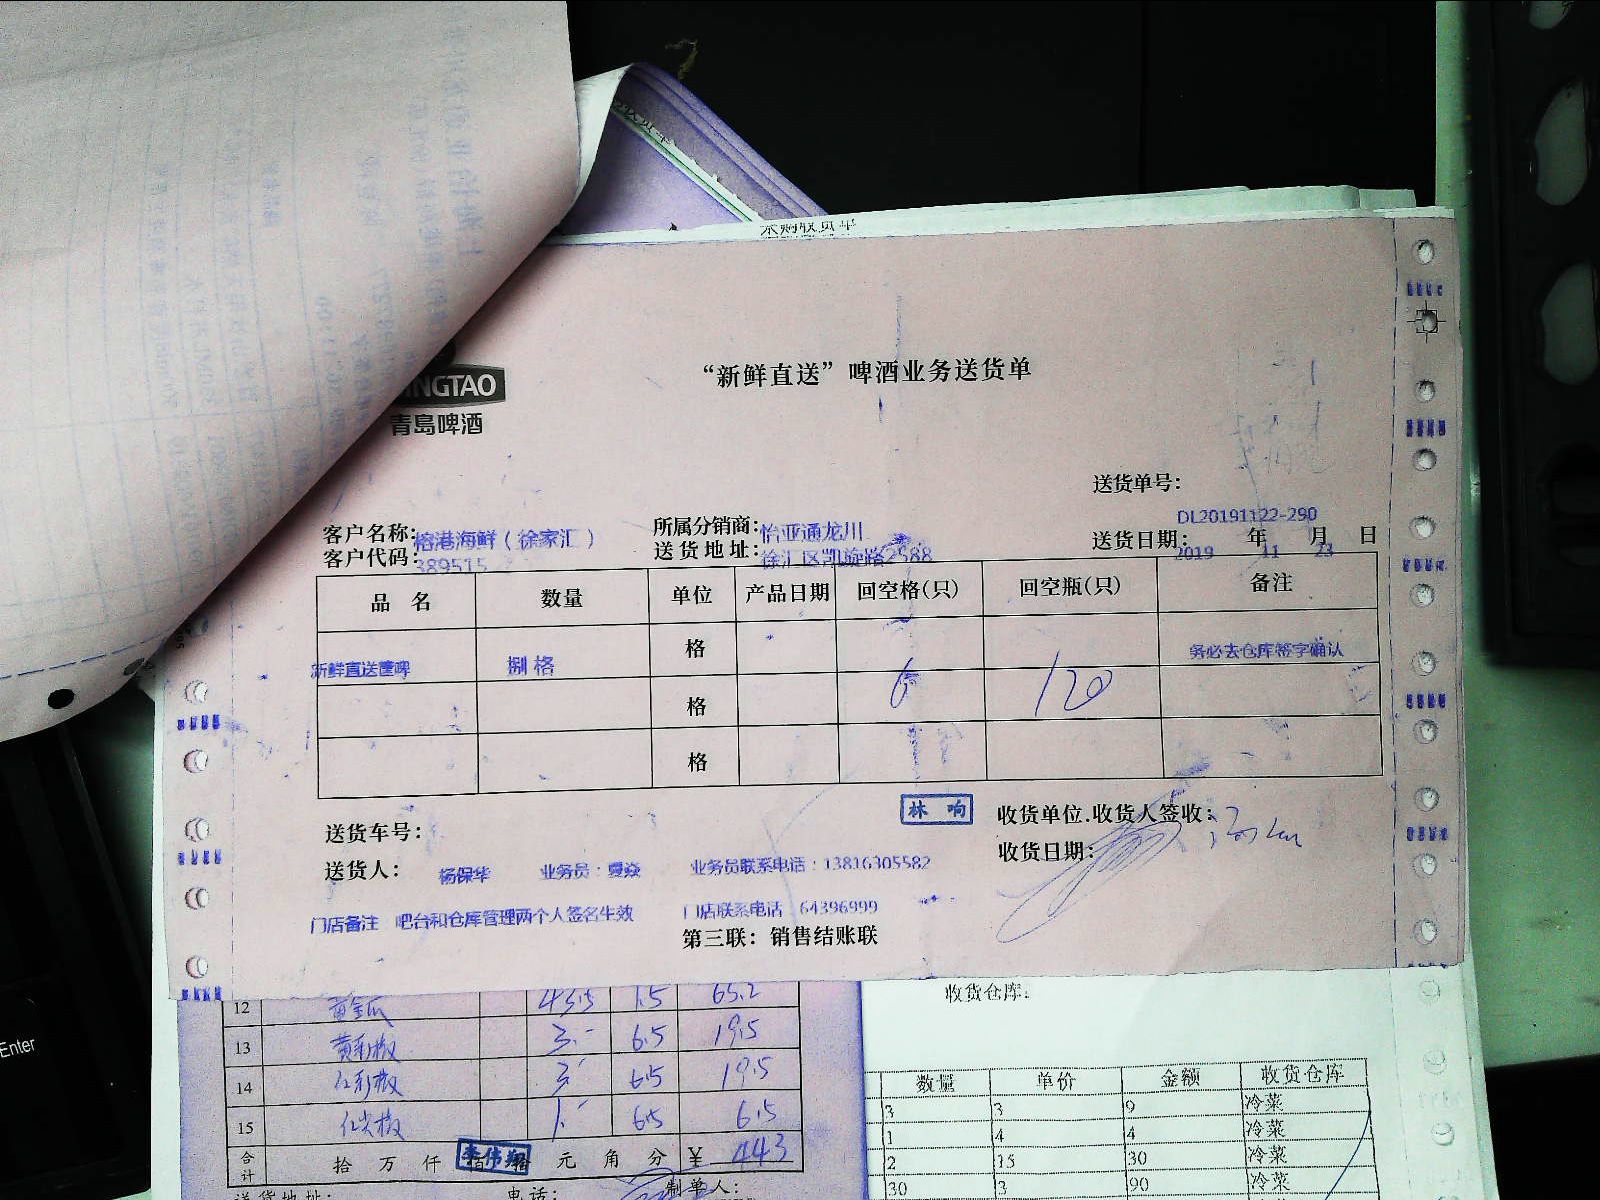 采购收货单
INGTAO
青島啤酒
“新鲜直送”啤酒业务送货单
送货单号:
DL20191122-290
客户名称: 榕港海鲜（徐家汇） 所属分销商: 怡亚通龙川 送货日期: 2019 年 11 月 23 日
客户代码: 389515 送货地址: 徐汇区凯旋路2588
品 名 数量 单位 产品日期 回空格(只) 回空瓶(只) 备注
新鲜直送筐啤 捌格 格 6 120 务必去仓库签字确认
格
格
林 响
送货车号: 收货单位.收货人签收:
送货人: 杨保华 业务员：夏焱 业务员联系电话：13816305582 收货日期:
门店备注 吧台和仓库管理两个人签名生效 门店联系电话 64396999
第三联：销售结账联
12 黄金瓜 43.5 1.5 65.2
13 黄彩椒 3.- 6.5 19.5
14 红彩椒 3 6.5 19.5
15 红尖椒 1.- 6.5 6.5
合计 拾 万 仟 元 角 分 ¥ 443
李伟翔
送货地址: 电话: 制单人:
收货仓库:
数量 单价 金额 收货仓库
3 3 9 冷菜
1 4 4 冷菜
2 15 30 冷菜
30 3 90 冷菜
Enter